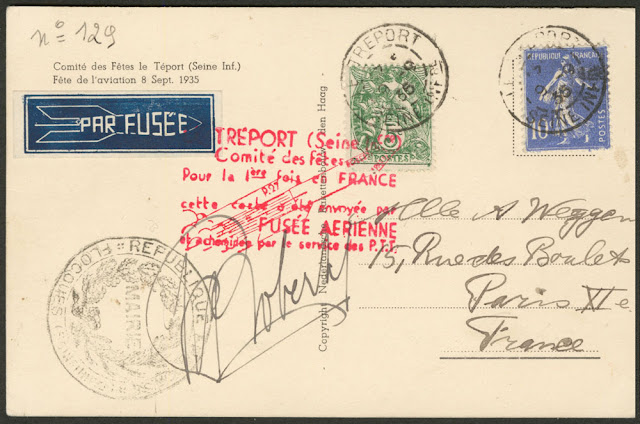 n° 129
Comité des Fêtes le Téport (Seine Inf.)
Fête de l'aviation 8 Sept. 1935
PAR FUSÉE
TREPORT (Seine
Comité des fêtes
Pour la 1ère fois en FRANCE
cette carte a été envoyée par
FUSÉE AÉRIENNE
et acheminée par le service des P.T.T.
TREPORT
POSTES
REPUBLIQUE FRANÇAISE
POSTES
SEINE INFRE
Mlle A Weggen
15, Rue des Boulets
Paris XIe
France
REPUBLIQUE
MAIRIE
FLOCQUES
Copyright Nederlandsche Den Haag